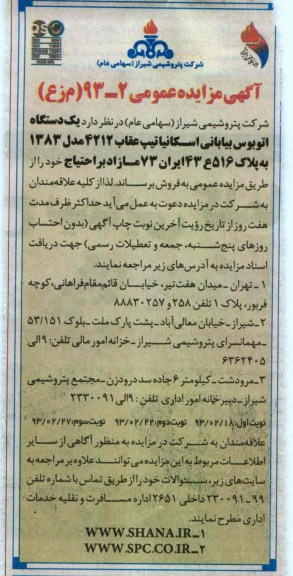 شرکت پتروشیمی شیراز (سهامی عام)
آگهی مزایده عمومی ۲-۹۳ (م ز ع)
شرکت پتروشیمی شیراز (سهامی عام) در نظر دارد یک دستگاه
اتوبوس بیابانی اسکانیا تیپ عقاب ۴۲۱۲ مدل ۱۳۸۳
به پلاک ۵۱۶ع۴۳ ایران ۷۳ مازاد بر احتیاج خود را از
طریق مزایده عمومی به فروش برساند. لذا از کلیه علاقه‌مندان
به شرکت در مزایده دعوت به عمل می‌آید حداکثر ظرف مدت
هفت روز از تاریخ رؤیت آخرین نوبت چاپ آگهی (بدون احتساب
روزهای پنج‌شنبه، جمعه و تعطیلات رسمی) جهت دریافت
اسناد مزایده به آدرس‌های زیر مراجعه نمایند.
۱- تهران - میدان هفت تیر، خیابان قائم‌مقام فراهانی، کوچه
فربور، پلاک ۱ تلفن ۲۵۸ و ۸۸۸۳۰۲۵۷
۲- شیراز - خیابان معالی‌آباد - پشت پارک ملت - بلوک ۵۳/۱۵۱
- مهمانسرای پتروشیمی شیراز - خزانه امور مالی تلفن: ۹ الی
۶۳۶۲۴۰۵
۳- مرودشت - کیلومتر ۶ جاده سد درودزن - مجتمع پتروشیمی
شیراز - دبیرخانه امور اداری تلفن: ۹ الی ۲۳۳۰۰۹۱
نوبت اول: ۹۳/۰۲/۱۸ نوبت دوم: ۹۳/۰۲/۲۲ نوبت سوم: ۹۳/۰۲/۲۷
علاقه‌مندان به شرکت در مزایده به منظور آگاهی از سایر
اطلاعات مربوط به این مزایده می‌توانند علاوه بر مراجعه به
سایت‌های زیر، سئوالات خود را از طریق تماس با شماره تلفن
۹۹-۲۳۳۰۰۹۱ داخلی ۲۶۵۱ اداره مسافرت و نقلیه خدمات
اداری مطرح نمایند.
۱-WWW.SHANA.IR
۲-WWW.SPC.CO.IR